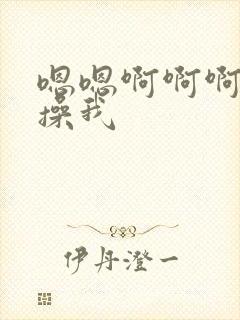 嗯嗯啊啊啊
操我
伊丹澄一